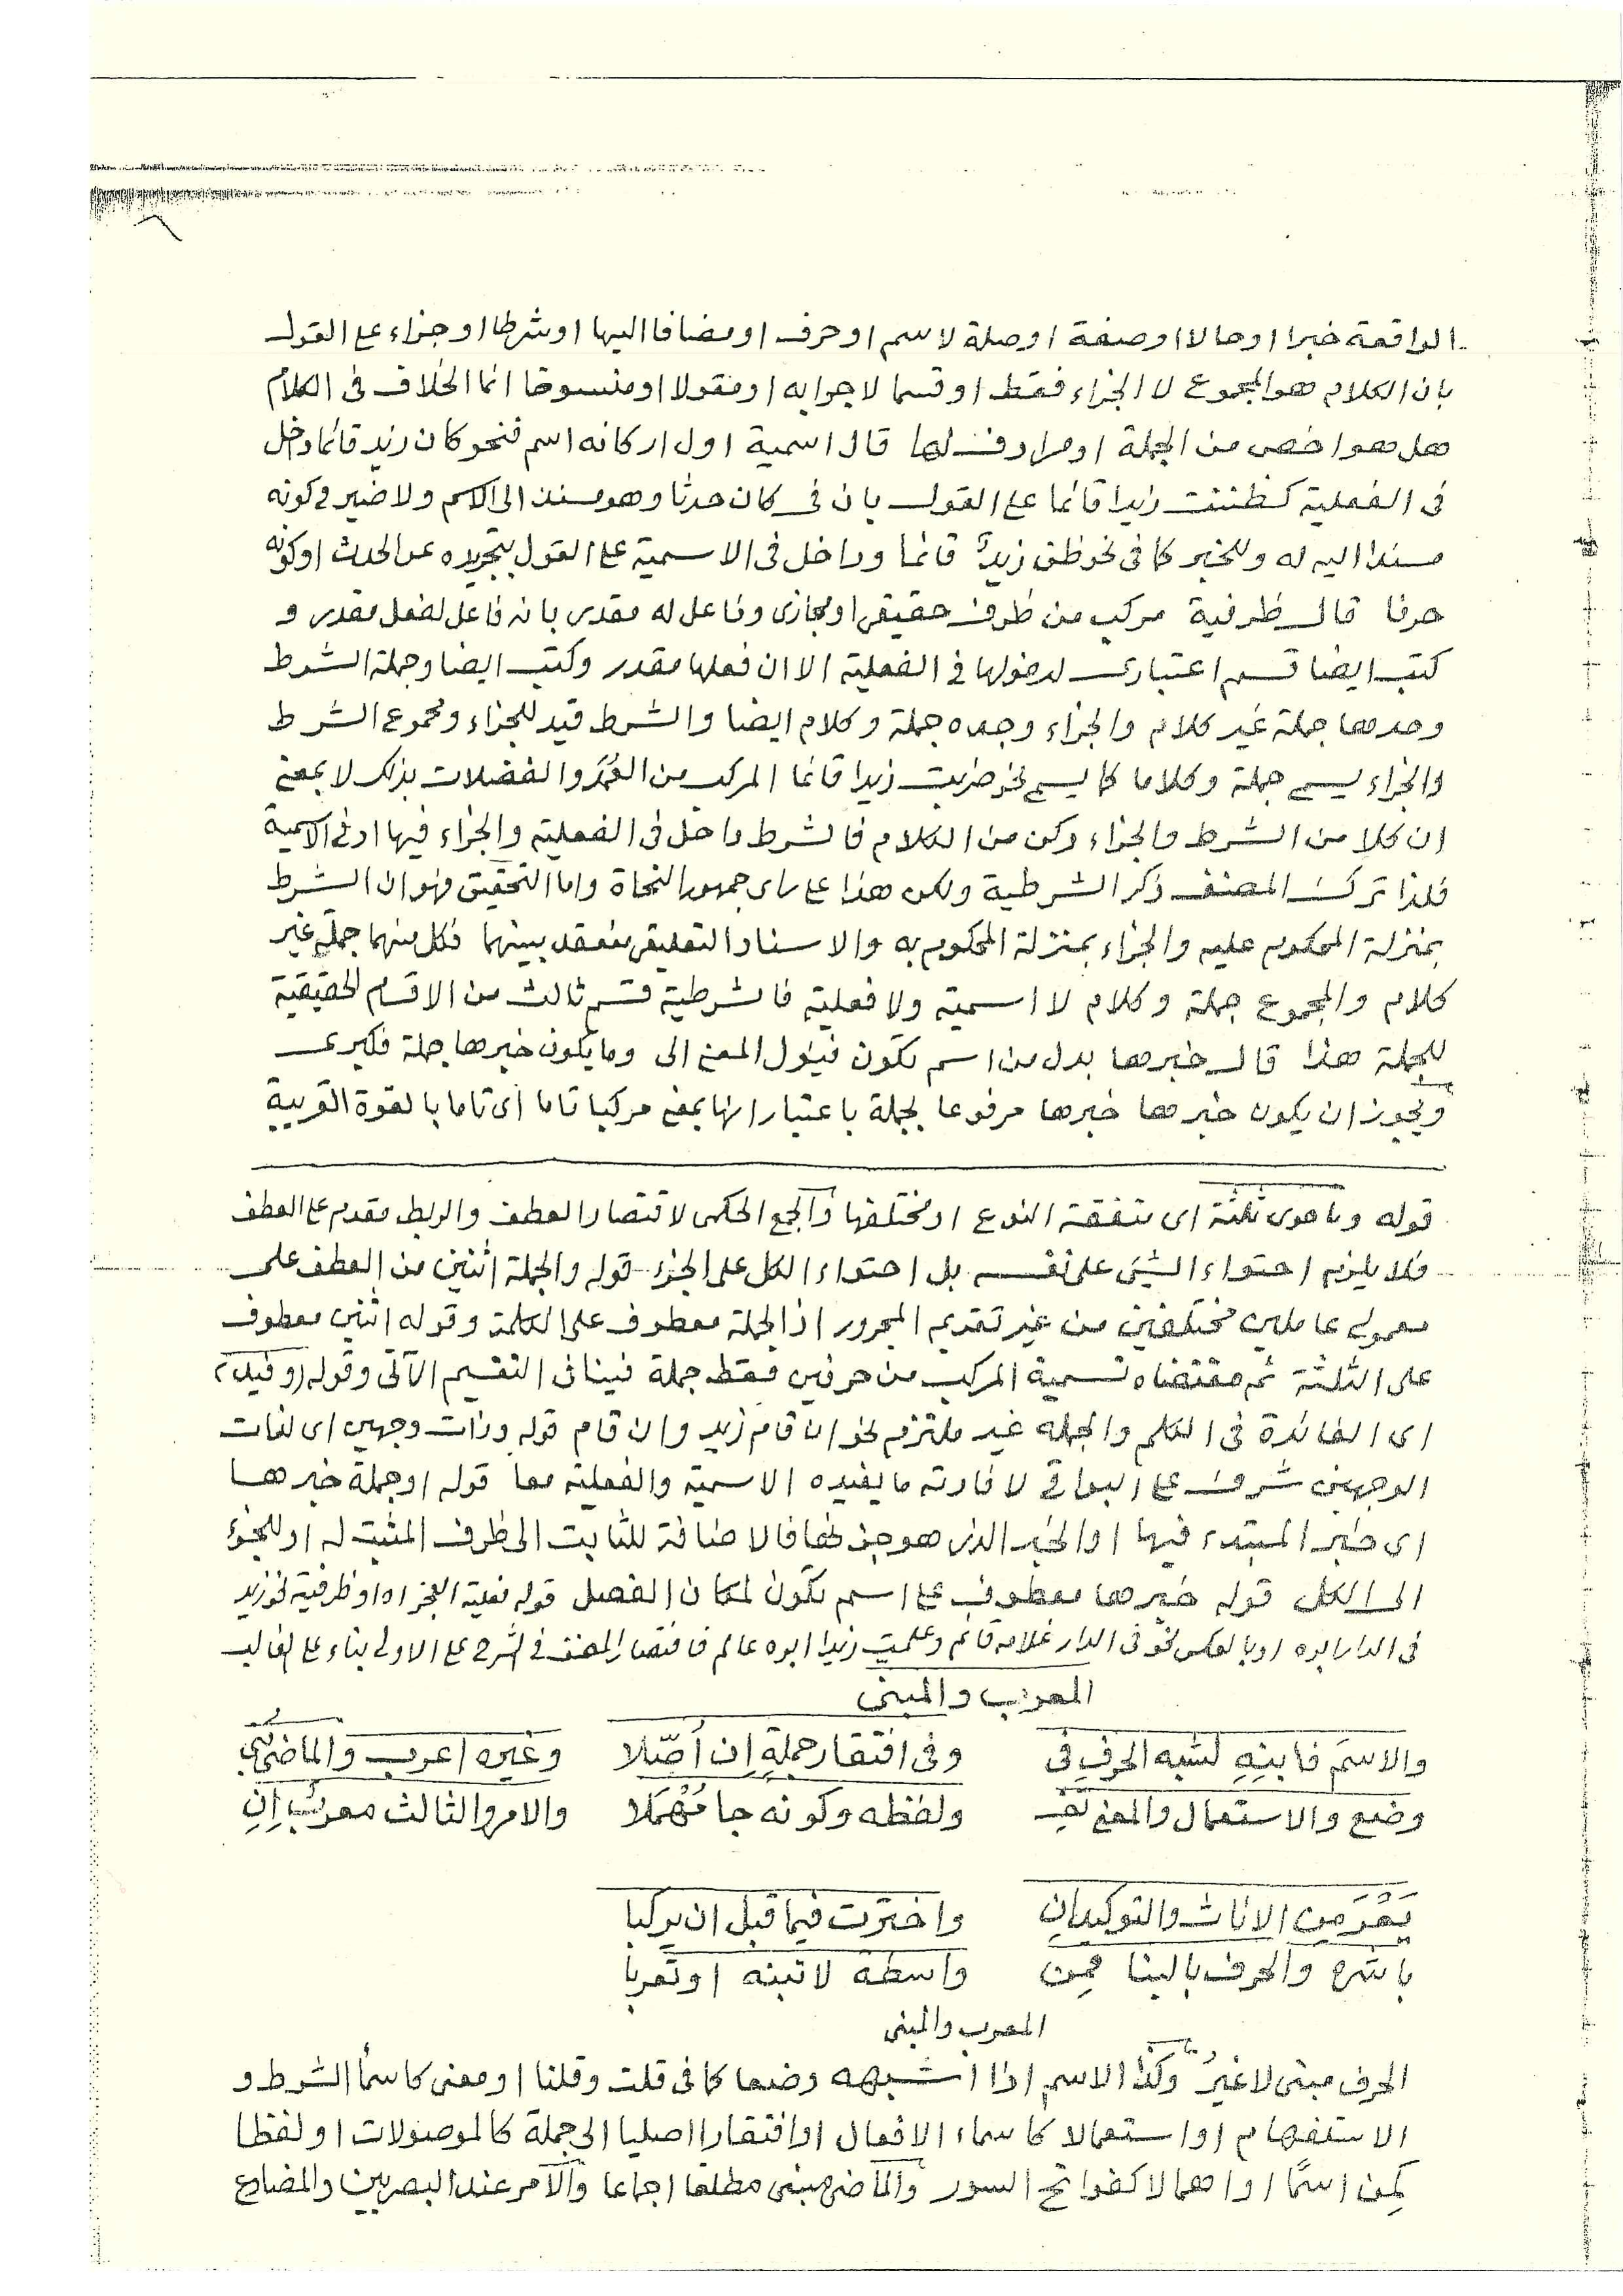 الواقعة خبرا او حالا او صفة او صلة لاسم او حرف او مضافا اليها او شرطا او جزاء ع القول
بان الكلام هو المجموع لا الجزاء فقط او قسما لا جوابه او مقولا او منسوخا انما الخلاف فى الكلام
هل هو اخص من الجملة او مرادف لها قال اسمية اول اركانه اسم فنحو كان زيد قائما دخل
فى الفعلية كظننت زيدا قائما ع القول بان فى كان حدثا وهو مسند الى الاسم ولا ضير فى كونه
مسندا اليه له وللخبر كما فى نحو ظن زيدٌ قائما وداخل فى الاسمية ع القول بتجريده عن الحدث او كونه
حرفا قال ظرفية مركب من ظرف حقيقى او مجازى وفاعل له مقدى بانه فاعل لفعل مقدر و
كتب ايضا قسم اعتبارى لدخولها فى الفعلية الا ان فعلها مقدر وكتب ايضا وجملة الشرط
وحدها جملة غير كلام والجزاء وحده جملة وكلام ايضا والشرط قيد للجزاء ومجموع الشرط
والجزاء يسمى جملة وكلاما كما يسمى نحو ضربت زيدا قائما المركب من العُمَد والفضلات بذلك لا بمعنى
ان كلا من الشرط والجزاء ركن من الكلام فالشرط داخل فى الفعلية والجزاء فيها او فى الاسمية
فلذا ترك المصنف ذكر الشرطية ولكن هذا ع راى جمهور النحاة واما التحقيق فهو ان الشرط
بمنزلة المحكوم عليه والجزاء بمنزلة المحكوم به والاسناد التعليقى منعقد بينهما فكل منهما جملة غير
كلام والمجموع جملة وكلام لا اسمية ولا فعلية فالشرطية قسم ثالث من الاقسام الحقيقية
للجملة هذا قال خبرها بدل من اسم تكون فيئول المعنى الى وما يكون خبرها جملة فكبرى
ويجوز ان يكون خبرها خبرها مرفوعا لجملة باعتبار انها بمعنى مركبا تاما اى تاما بالقوة القريبة
قوله وما حوى ثلثة اى متفقة النوع او مختلفها والجمع الحكمى لاقتصار العطف والربط مقدم ع العطف
فلا يلزم احتواء الشيئ على نفسه بل احتواء الكل على الجزء قوله والجملة اثنين من العطف على
معمولى عاملين مختلفين من غير تقديم المجرور اذ الجملة معطوف على الكلمة وقوله اثنين معطوف
على الثلثة ثم مقتضاه تسمية المركب من حرفين فقط جملة فينافى التقسيم الآتى وقوله (وقيل)
اى الفائدة فى الكلم والجمله غير ملتزم نحو ان قام زيد وان قام قوله وذات وجهين اى لفات
الوجهين شرف ع البواقى لافادته ما يفيده الاسمية والفعلية معا قوله او جملة خبرها
اى خبر المبتدء فيها او الخبر الذى هو جزءها فالاضافة للثابت الى ظرف المثبت له او للجزء
الى الكل قوله خبرها معطوف ع اسم تكون لمكان الفصل قوله فعلية العجز اه او ظرفية نحو زيد
فى الدار ابوه او بالعكس نحو فى الدار غلامه قائم وعلمت زيدا ابوه عالم فاقتصار المصنف فى الشرح ع الاولى بناء ع الغالب
المعرب والمبنى
والاسمَ فابنِهِ لشبه الحرفِ فى وفى افتقار جملةٍ اِن اُصّلا وغيره اعرب والماضى
وضع والاستعمال والمعنى تَفِ ولفظه وكونه جا مُهْمَلا والامر والثالث معربٌ اِنِ
يَعْرَ مِن الاناث والتوكيدانِ واخترت فيما قبل ان يركبا
باشره والحرف بالبنا قمِن واسطة لا تبنه او تعربا
المعرب والمبنى
الحرف مبنى لا غيرُ وكذا الاسم اذا اشبهه وضعا كما فى قلت وقلنا او معنى كاسمأ الشرط و
الاستفهام او استعمالا كاسماء الافعال او افتقارا اصليا الى جملة كالموصولات او لفظا
كمِن اسمًا او اهمالا كفواتح السور والماضى مبنى مطلقا اجماعا والامر عند البصريين والمضارع